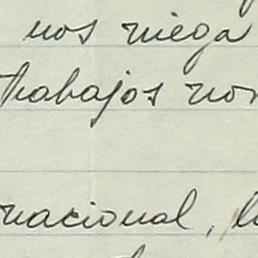 nos niega
trabajos nor
nacional, la